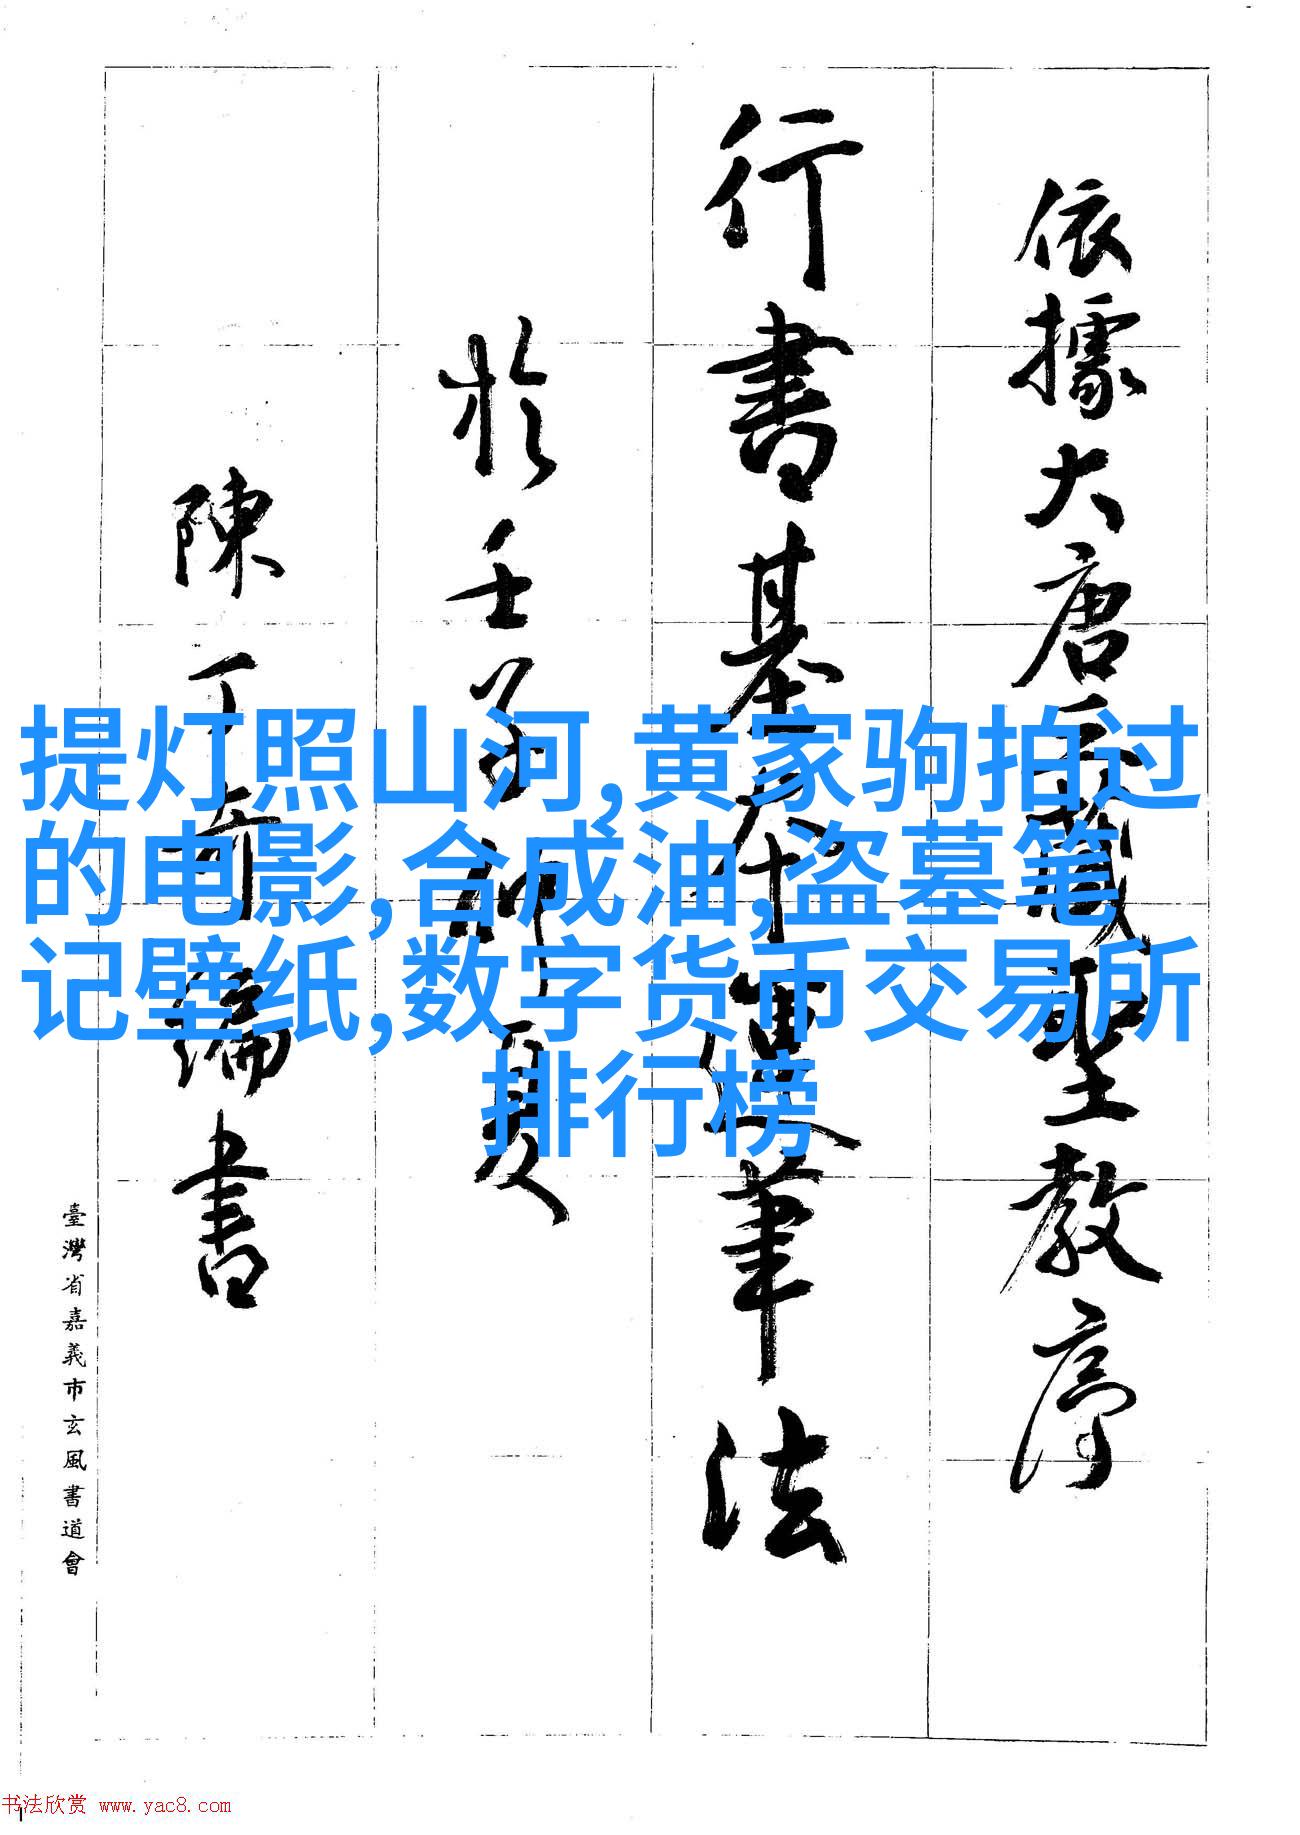 依據大唐三藏聖教序
行書基本運筆法
於壬子仲夏
陳丁奇編書
臺灣省嘉義市玄風書道會
提灯照山河,黄家驹拍过
的电影,合成油,盗墓笔
记壁纸,数字货币交易所
排行榜
书法欣赏 www.yac8.com